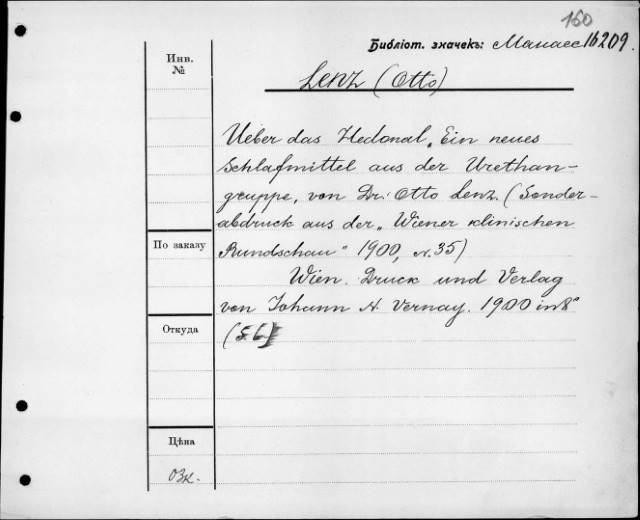 160
Библіот. значекъ: Манасс 16209.
Инв.
№
Lenz (Otto)
Ueber das Hedonal. Ein neues
Schlafmittel aus der Urethan-
gruppe, von Dr. Otto Lenz. (Sonder-
abdruck aus der „Wiener klinischen
Rundschau" 1900, N. 35)
Wien. Druck und Verlag
von Johann N. Vernay. 1900 in 8°
По заказу
Откуда
Цѣна